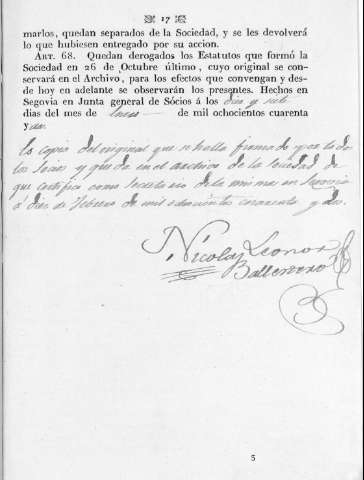 17
marlos, quedan separados de la Sociedad, y se les devolverá
lo que hubiesen entregado por su accion.
ART. 68. Quedan derogados los Estatutos que formó la
Sociedad en 26 de Octubre último, cuyo original se con-
servará en el Archivo, para los efectos que convengan y des-
de hoy en adelante se observarán los presentes. Hechos en
Segovia en Junta general de Sócios á los diez y siete
dias del mes de Enero de mil ochocientos cuarenta
y dos.
Es copia del original que se halla firmado por todos
los Socios y queda en el archivo de la Sociedad de
que certifico como Secretario de la misma en Segovia
á diez de Febrero de mil ochocientos cuarenta y dos.
Nicolas Leonor
Ballestero
5